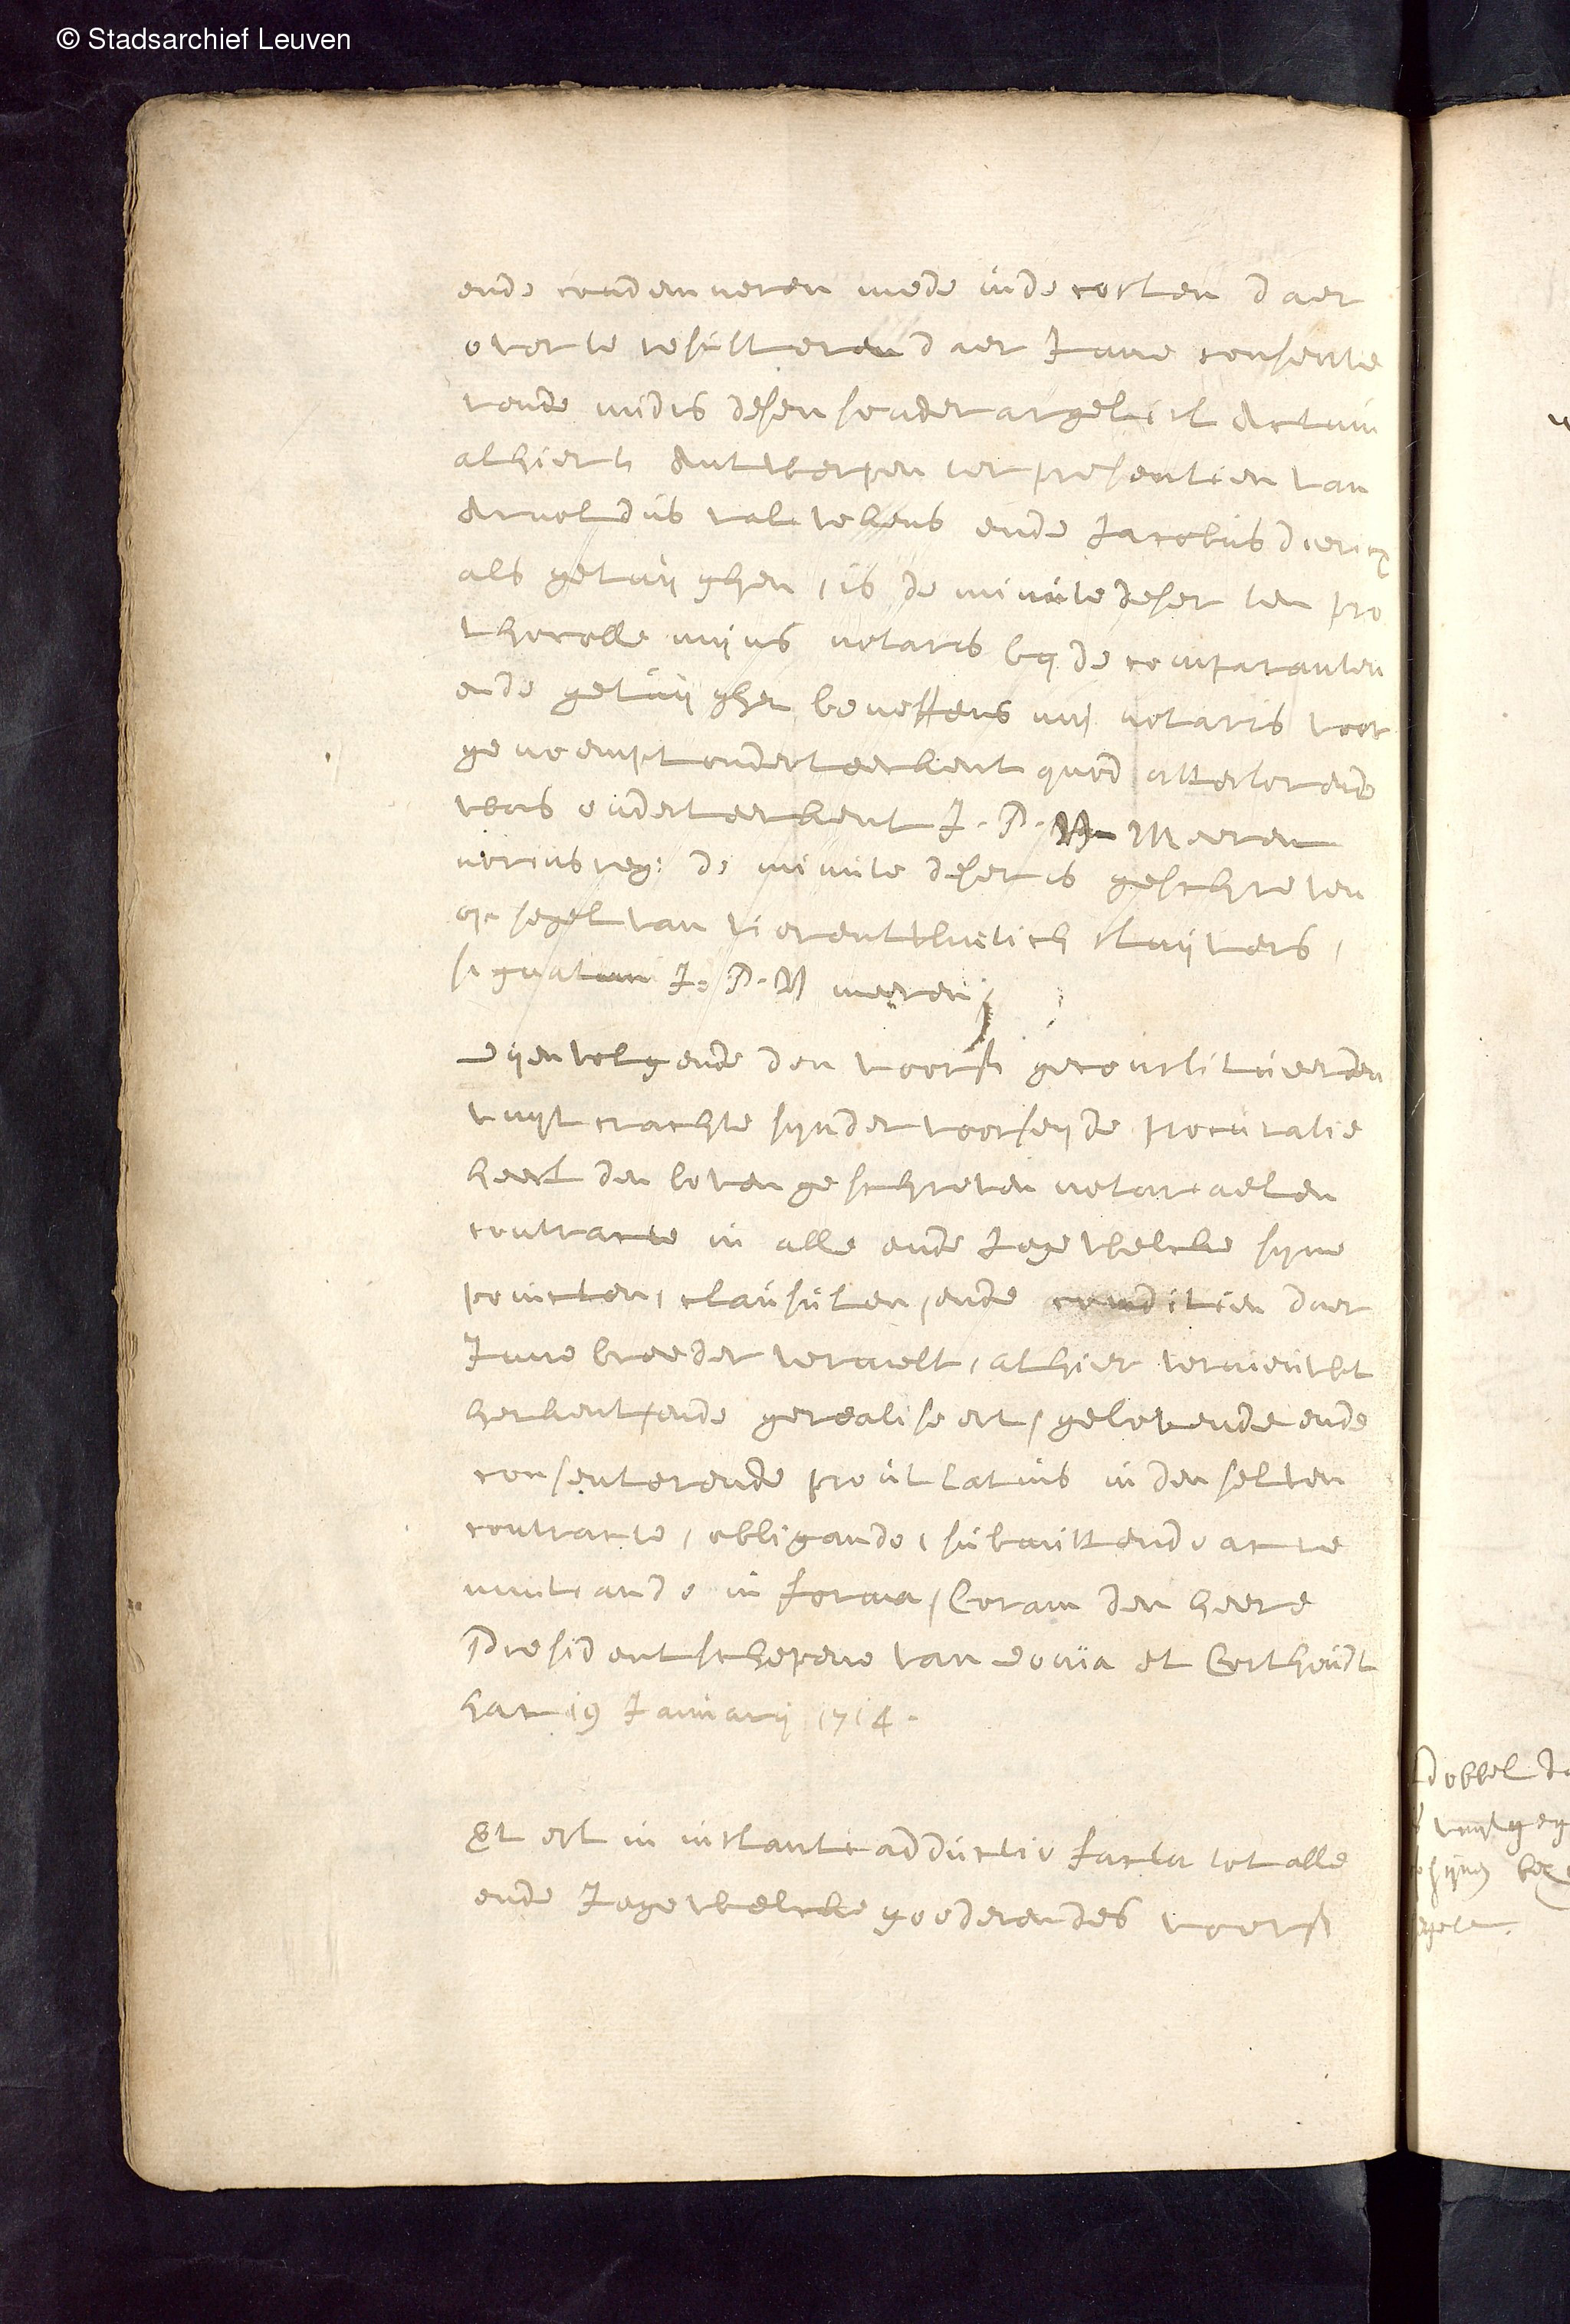 © Stadsarchief Leuven
ende condemneren mede inde costen daer
over te resulteren daer Inne consente
rende midts desen sonder argelist Actum
alhier t' Antwerpen ter presentien van
Arnoldus ende Jacobus diericx
als getuijghen, is de minute deser ten pro
thocolle mijns notaris bij de comparanten
ende getuijghen beneffens mij notaris voor
genoempt onderteeckent quod attestor ende
was onderteeckent J. P. V Meeren
de minute deser is geschreven
op segel van vierentwintich stuijvers,
signatum J: P. V meeren
dijenvolgende den voors geconstitueerden
vuijt crachte sijnder voorseijde procuratie
heeft den boven geschreven notariaelen
contracte in alle ende Iegewelcke syne
poincten, clausulen, ende conditien daer
Inne breeder vermelt, alhier vernieuwt
herkent, ende gerealiseert, gelovende ende
consenterende prout latius in den selven
contracte, obligando, submittendo ac re
nuntiando in forma, Coram den heere
President schepene van dovia et Corthendt
hac 19 Januarij 1714.
Et est in instanti adductio facta tot alle
ende Iegewelcke goederen des voors
Dobbel